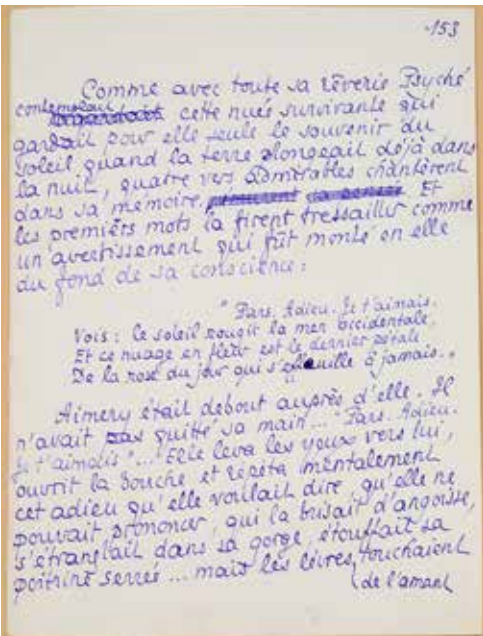 153
Comme avec toute sa rêverie Psyché
contemplait
cette nuée survivante qui
gardait pour elle seule le souvenir du
soleil quand la terre plongeait déjà dans
la nuit, quatre vers admirables chantèrent
dans sa mémoire. Et
les premiers mots la firent tressaillir comme
un avertissement qui fût monté en elle
du fond de sa conscience :
" Pars. Adieu. Je t'aimais.
Vois : le soleil rougit la mer occidentale
Et ce nuage en fleur est le dernier pétale
De la rose du jour qui s'effeuille à jamais. "
Aimery était debout auprès d'elle. Il
n'avait pas quitté sa main... "Pars. Adieu.
Je t'aimais"... Elle leva les yeux vers lui,
ouvrit la bouche et répéta mentalement
cet adieu qu'elle voulait dire, qu'elle ne
pouvait prononcer, qui la brisait d'angoisse,
s'étranglait dans sa gorge, étouffait sa
poitrine serrée... mais les lèvres touchaient
(de l'amant